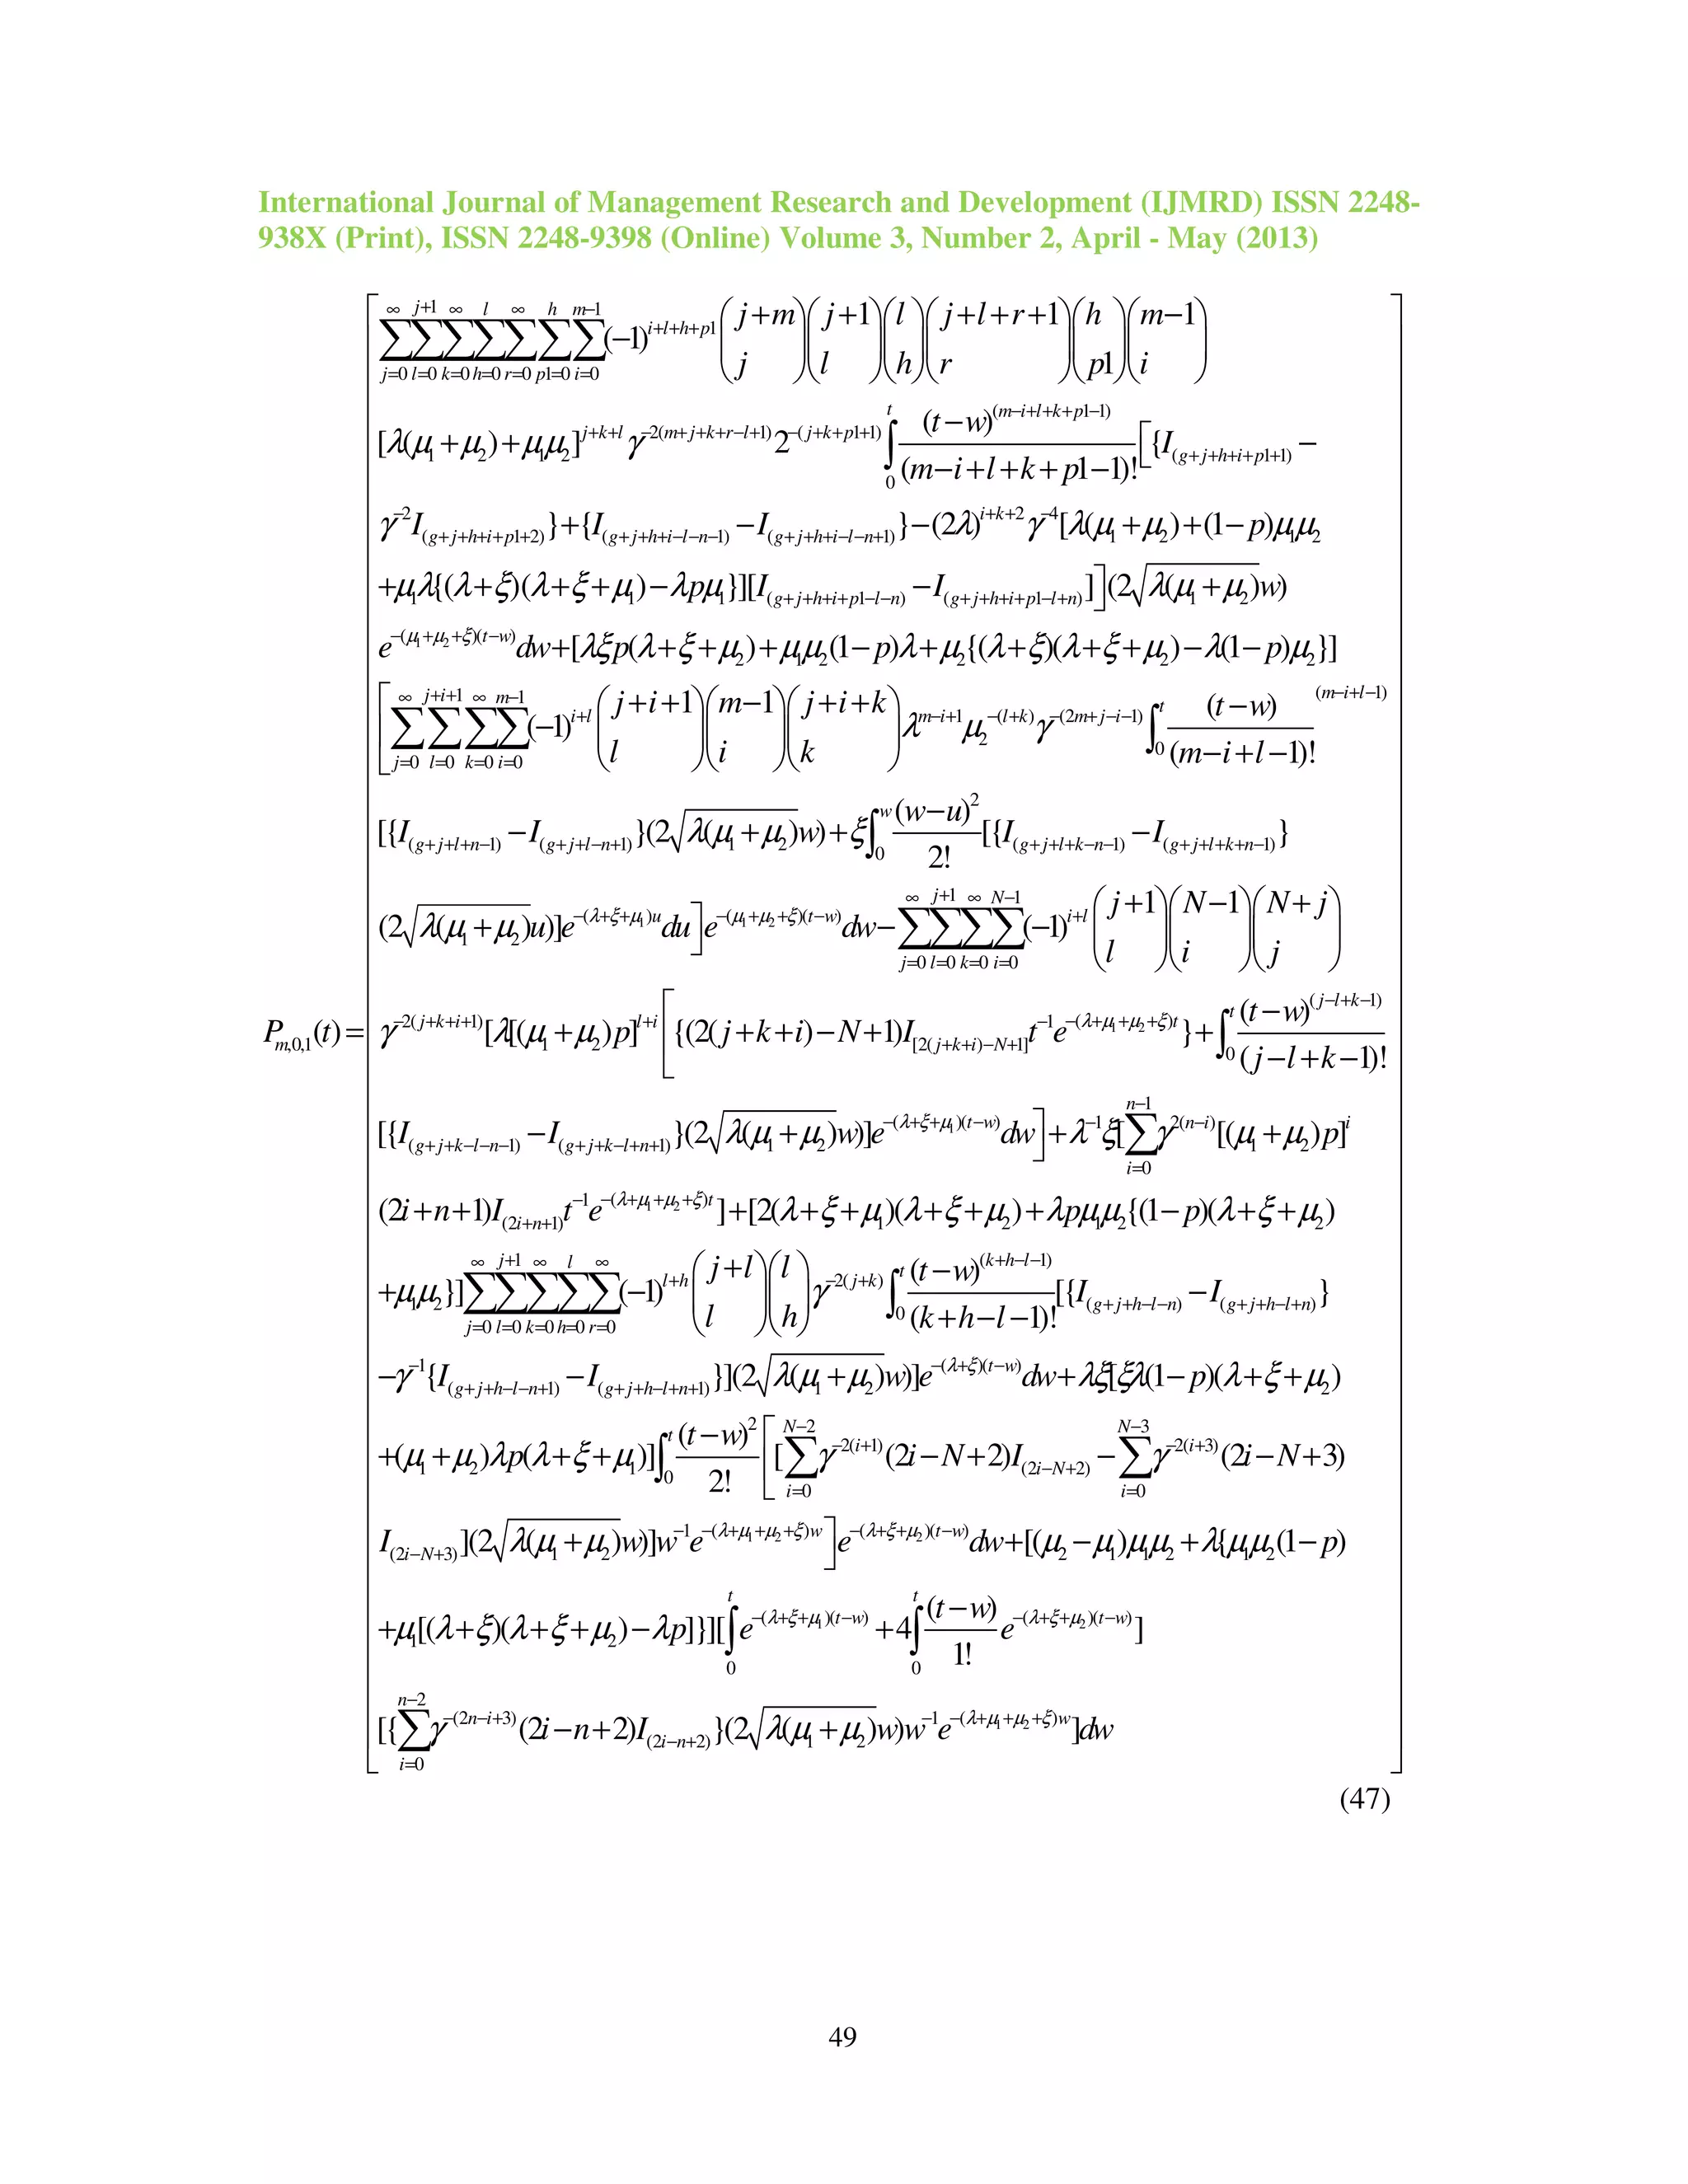 International Journal of Management Research and Development (IJMRD) ISSN 2248-
938X (Print), ISSN 2248-9398 (Online) Volume 3, Number 2, April - May (2013)
∑_{j=0}^{∞} ∑_{l=0}^{j+1} ∑_{k=0}^{∞} ∑_{h=0}^{l} ∑_{r=0}^{∞} ∑_{p1=0}^{h} ∑_{i=0}^{m−1} (−1)^{i+l+h+p1} (j+m j) (j+1 l) (l h) (j+l+r+1 r) (h p1) (m−1 i)
[λ(μ₁+μ₂)+μ₁μ₂]^{j+k+l} γ^{−2(m+j+k+r−l+1)} 2^{−(j+k+p1+1)} ∫_0^t (t−w)^{(m−i+l+k+p1−1)} / (m−i+l+k+p1−1)! [{I_{(g+j+h+i+p1+1)} −
γ^{−2} I_{(g+j+h+i+p1+2)}} + {I_{(g+j+h+i−l−n−1)} − I_{(g+j+h+i−l−n+1)}} − (2λ)^{i+k+2} γ^{−4} [λ(μ₁+μ₂)+(1−p)μ₁μ₂
+μ₁λ{(λ+ξ)(λ+ξ+μ₁)−λpμ₁}][I_{(g+j+h+i+p1−l−n)} − I_{(g+j+h+i+p1−l+n)}] ] (2√λ(μ₁+μ₂)w)
e^{−(μ₁+μ₂+ξ)(t−w)} dw+[λξp(λ+ξ+μ₂)+μ₁μ₂(1−p)λ+μ₂{(λ+ξ)(λ+ξ+μ₂)−λ(1−p)μ₂}]
[ ∑_{j=0}^{∞} ∑_{l=0}^{j+i+1} ∑_{k=0}^{∞} ∑_{i=0}^{m−1} (−1)^{i+l} (j+i+1 l) (m−1 i) (j+i+k k) λ^{m−i+1} μ₂^{−(l+k)} γ^{−(2m+j−i−1)} ∫_0^t (t−w)^{(m−i+l−1)} / (m−i+l−1)!
[{I_{(g+j+l+n−1)} − I_{(g+j+l−n+1)}}(2√λ(μ₁+μ₂)w)+ξ∫_0^w (w−u)² / 2! [{I_{(g+j+l+k−n−1)} − I_{(g+j+l+k+n−1)}}
(2√λ(μ₁+μ₂)u)]e^{−(λ+ξ+μ₁)u} du ] e^{−(μ₁+μ₂+ξ)(t−w)} dw − ∑_{j=0}^{∞} ∑_{l=0}^{j+1} ∑_{k=0}^{∞} ∑_{i=0}^{N−1} (−1)^{i+l} (j+1 l) (N−1 i) (N+j j)
P_{m,0,1}(t) = γ^{−2(j+k+i+1)} [λ[(μ₁+μ₂)p]^{l+i} [ {(2(j+k+i)−N+1)I_{[2(j+k+i)−N+1]} t^{−1} e^{−(λ+μ₁+μ₂+ξ)t}} + ∫_0^t (t−w)^{(j−l+k−1)} / (j−l+k−1)!
[{I_{(g+j+k−l−n−1)} − I_{(g+j+k−l+n+1)}}(2√λ(μ₁+μ₂)w)]e^{−(λ+ξ+μ₁)(t−w)} dw ] + λ^{−1} ξ[∑_{i=0}^{n−1} γ^{2(n−i)} [(μ₁+μ₂)p]^i
(2i+n+1)I_{(2i+n+1)} t^{−1} e^{−(λ+μ₁+μ₂+ξ)t}]+[2(λ+ξ+μ₁)(λ+ξ+μ₂)+λpμ₁μ₂{(1−p)(λ+ξ+μ₂)
+μ₁μ₂}] ∑_{j=0}^{∞} ∑_{l=0}^{j+1} ∑_{k=0}^{∞} ∑_{h=0}^{l} ∑_{r=0}^{∞} (−1)^{l+h} (j+l l) (l h) γ^{−2(j+k)} ∫_0^t (t−w)^{(k+h−l−1)} / (k+h−l−1)! [{I_{(g+j+h−l−n)} − I_{(g+j+h−l+n)}}
−γ^{−1}{I_{(g+j+h−l−n+1)} − I_{(g+j+h−l+n+1)}}](2√λ(μ₁+μ₂)w)]e^{−(λ+ξ)(t−w)} dw+λξ[ξλ(1−p)(λ+ξ+μ₂)
+(μ₁+μ₂)λp(λ+ξ+μ₁)] ∫_0^t (t−w)² / 2! [ [∑_{i=0}^{N−2} γ^{−2(i+1)} (2i−N+2)I_{(2i−N+2)} − ∑_{i=0}^{N−3} γ^{−2(i+3)} (2i−N+3)
I_{(2i−N+3)}](2√λ(μ₁+μ₂)w)]w^{−1} e^{−(λ+μ₁+μ₂+ξ)w} ] e^{−(λ+ξ+μ₂)(t−w)} dw+[(μ₂−μ₁)μ₁μ₂+λ{μ₁μ₂(1−p)
+μ₁[(λ+ξ)(λ+ξ+μ₂)−λp]}][∫_0^t e^{−(λ+ξ+μ₁)(t−w)} +4∫_0^t (t−w) / 1! e^{−(λ+ξ+μ₂)(t−w)}]
[{∑_{i=0}^{n−2} γ^{−(2n−i+3)} (2i−n+2)I_{(2i−n+2)}}(2√λ(μ₁+μ₂)w)w^{−1} e^{−(λ+μ₁+μ₂+ξ)w}]dw
(47)
49